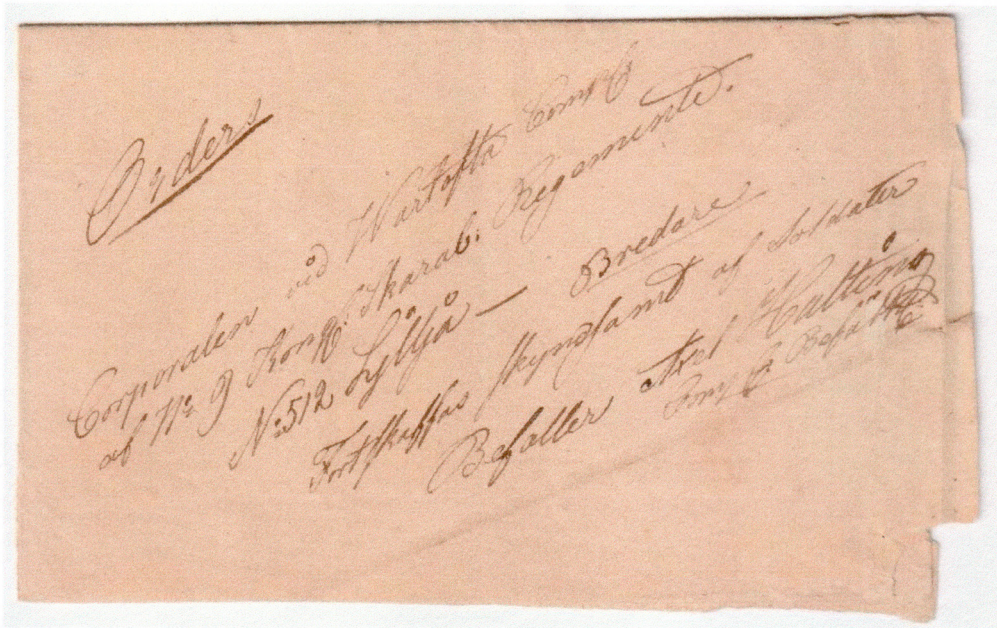 Orders
Corporalen vid Wartofta Comp
af No 9 Kongl. Skarab: Regemente.
No 512 Lyllja — Bredare
Fortskaffas skyndsamt af Soldater
Befaller Axel Hulting
Comp Befäl